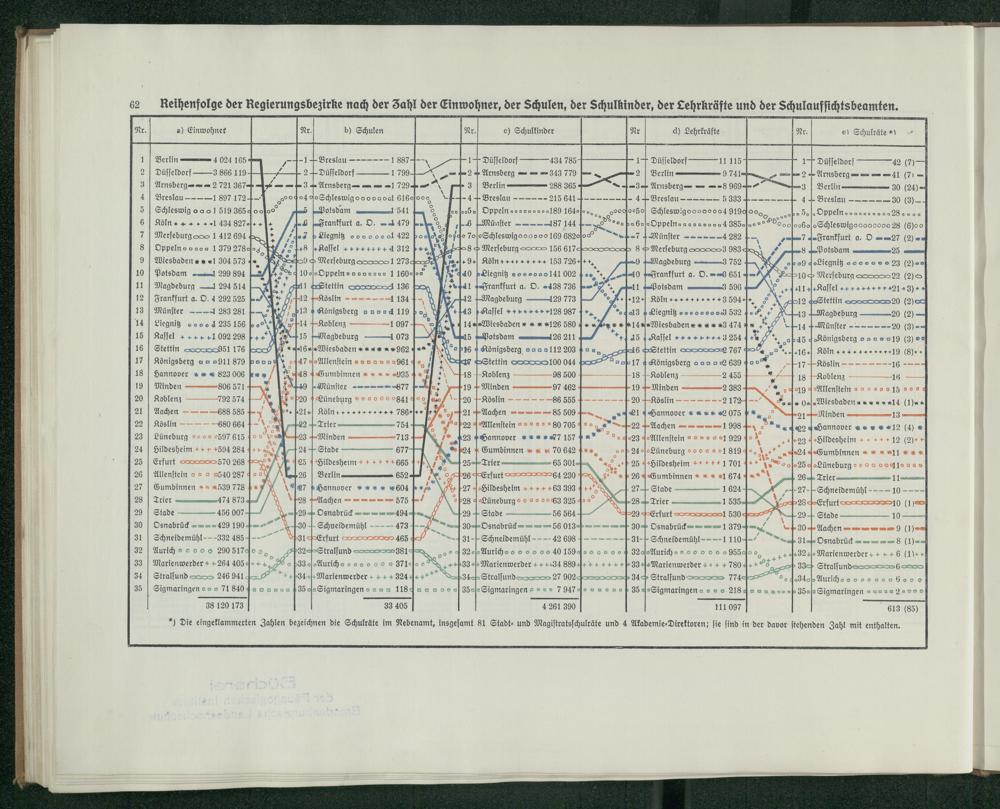 62 Reihenfolge der Regierungsbezirke nach der Zahl der Einwohner, der Schulen, der Schulkinder, der Lehrkräfte und der Schulaufsichtsbeamten.
Nr. a) Einwohner Nr. b) Schulen Nr. c) Schulkinder Nr d) Lehrkräfte Nr. e) Schulräte *)
1 Berlin 4 024 165 1 Breslau 1 887 1 Düsseldorf 434 785 1 Düsseldorf 11 115 1 Düsseldorf 42 (7)
2 Düsseldorf 3 866 119 2 Düsseldorf 1 799 2 Arnsberg 343 779 2 Berlin 9 741 2 Arnsberg 41 (7)
3 Arnsberg 2 721 367 3 Arnsberg 1 729 3 Berlin 288 365 3 Arnsberg 8 969 3 Berlin 30 (24)
4 Breslau 1 897 172 4 Schleswig 1 616 4 Breslau 215 641 4 Breslau 5 333 4 Breslau 30 (3)
5 Schleswig 1 519 365 5 Potsdam 1 541 5 Oppeln 189 164 5 Schleswig 4 919 5 Oppeln 28
6 Köln 1 434 827 6 Frankfurt a. O. 1 479 6 Münster 187 144 6 Oppeln 4 385 6 Schleswig 28 (6)
7 Merseburg 1 412 694 7 Liegnitz 1 422 7 Schleswig 169 682 7 Münster 4 282 7 Frankfurt a. O 27 (2)
8 Oppeln 1 379 278 8 Kassel 1 312 8 Merseburg 156 617 8 Merseburg 3 983 8 Potsdam 25
9 Wiesbaden 1 304 573 9 Merseburg 1 273 9 Köln 153 726 9 Magdeburg 3 752 9 Liegnitz 23 (2)
10 Potsdam 1 299 894 10 Oppeln 1 160 10 Liegnitz 141 002 10 Frankfurt a. O. 3 651 10 Merseburg 22 (2)
11 Magdeburg 1 294 514 11 Stettin 1 136 11 Frankfurt a. O. 138 736 11 Potsdam 3 596 11 Kassel 21 (3)
12 Frankfurt a. O. 1 292 525 12 Köslin 1 134 12 Magdeburg 129 773 12 Köln 3 594 12 Stettin 20 (2)
13 Münster 1 283 281 13 Königsberg 1 119 13 Kassel 128 987 13 Liegnitz 3 532 13 Magdeburg 20 (2)
14 Liegnitz 1 235 156 14 Koblenz 1 097 14 Wiesbaden 126 580 14 Wiesbaden 3 474 14 Münster 20 (3)
15 Kassel 1 092 298 15 Magdeburg 1 073 15 Potsdam 126 211 15 Kassel 3 254 15 Königsberg 19 (3)
16 Stettin 951 176 16 Wiesbaden 962 16 Königsberg 112 203 16 Stettin 2 767 16 Köln 19 (8)
17 Königsberg 911 879 17 Allenstein 961 17 Stettin 100 044 17 Königsberg 2 639 17 Köslin 16
18 Hannover 823 006 18 Gumbinnen 935 18 Koblenz 98 500 18 Koblenz 2 455 18 Koblenz 16
19 Minden 806 571 19 Münster 877 19 Minden 97 462 19 Minden 2 383 19 Allenstein 15
20 Koblenz 792 574 20 Lüneburg 841 20 Köslin 86 555 20 Köslin 2 172 Wiesbaden 14 (1)
21 Aachen 688 585 21 Köln 786 21 Aachen 85 509 21 Hannover 2 075 21 Minden 13
22 Köslin 680 664 22 Trier 754 22 Allenstein 80 705 22 Aachen 1 998 22 Hannover 12 (4)
23 Lüneburg 597 615 23 Minden 713 23 Hannover 77 157 23 Allenstein 1 929 23 Hildesheim 12 (2)
24 Hildesheim 594 284 24 Stade 677 24 Gumbinnen 70 642 24 Lüneburg 1 819 24 Gumbinnen 11
25 Erfurt 570 268 25 Hildesheim 665 25 Trier 65 301 25 Hildesheim 1 701 25 Lüneburg 11
26 Allenstein 540 287 26 Berlin 652 26 Erfurt 64 230 26 Gumbinnen 1 674 26 Trier 11
27 Gumbinnen 539 778 27 Hannover 604 27 Hildesheim 63 393 27 Stade 1 624 27 Schneidemühl 10
28 Trier 474 873 28 Aachen 575 28 Lüneburg 63 325 28 Trier 1 535 28 Erfurt 10 (1)
29 Stade 456 007 29 Osnabrück 494 29 Stade 56 564 29 Erfurt 1 530 29 Stade 10
30 Osnabrück 429 190 30 Schneidemühl 473 30 Osnabrück 56 013 30 Osnabrück 1 379 30 Aachen 9 (1)
31 Schneidemühl 332 485 31 Erfurt 465 31 Schneidemühl 42 698 31 Schneidemühl 1 110 31 Osnabrück 8 (1)
32 Aurich 290 517 32 Stralsund 381 32 Aurich 40 159 32 Aurich 955 32 Marienwerder 6 (1)
33 Marienwerder 264 405 33 Aurich 371 33 Marienwerder 34 889 33 Marienwerder 780 33 Stralsund 6
34 Stralsund 246 941 34 Marienwerder 324 34 Stralsund 27 902 34 Stralsund 774 34 Aurich 6
35 Sigmaringen 71 840 35 Sigmaringen 118 35 Sigmaringen 7 947 35 Sigmaringen 218 35 Sigmaringen 2
38 120 173 33 405 4 261 390 111 097 613 (85)
*) Die eingeklammerten Zahlen bezeichnen die Schulräte im Nebenamt, insgesamt 81 Stadt- und Magistratsschulräte und 4 Akademie-Direktoren; sie sind in der davor stehenden Zahl mit enthalten.
Bücherei